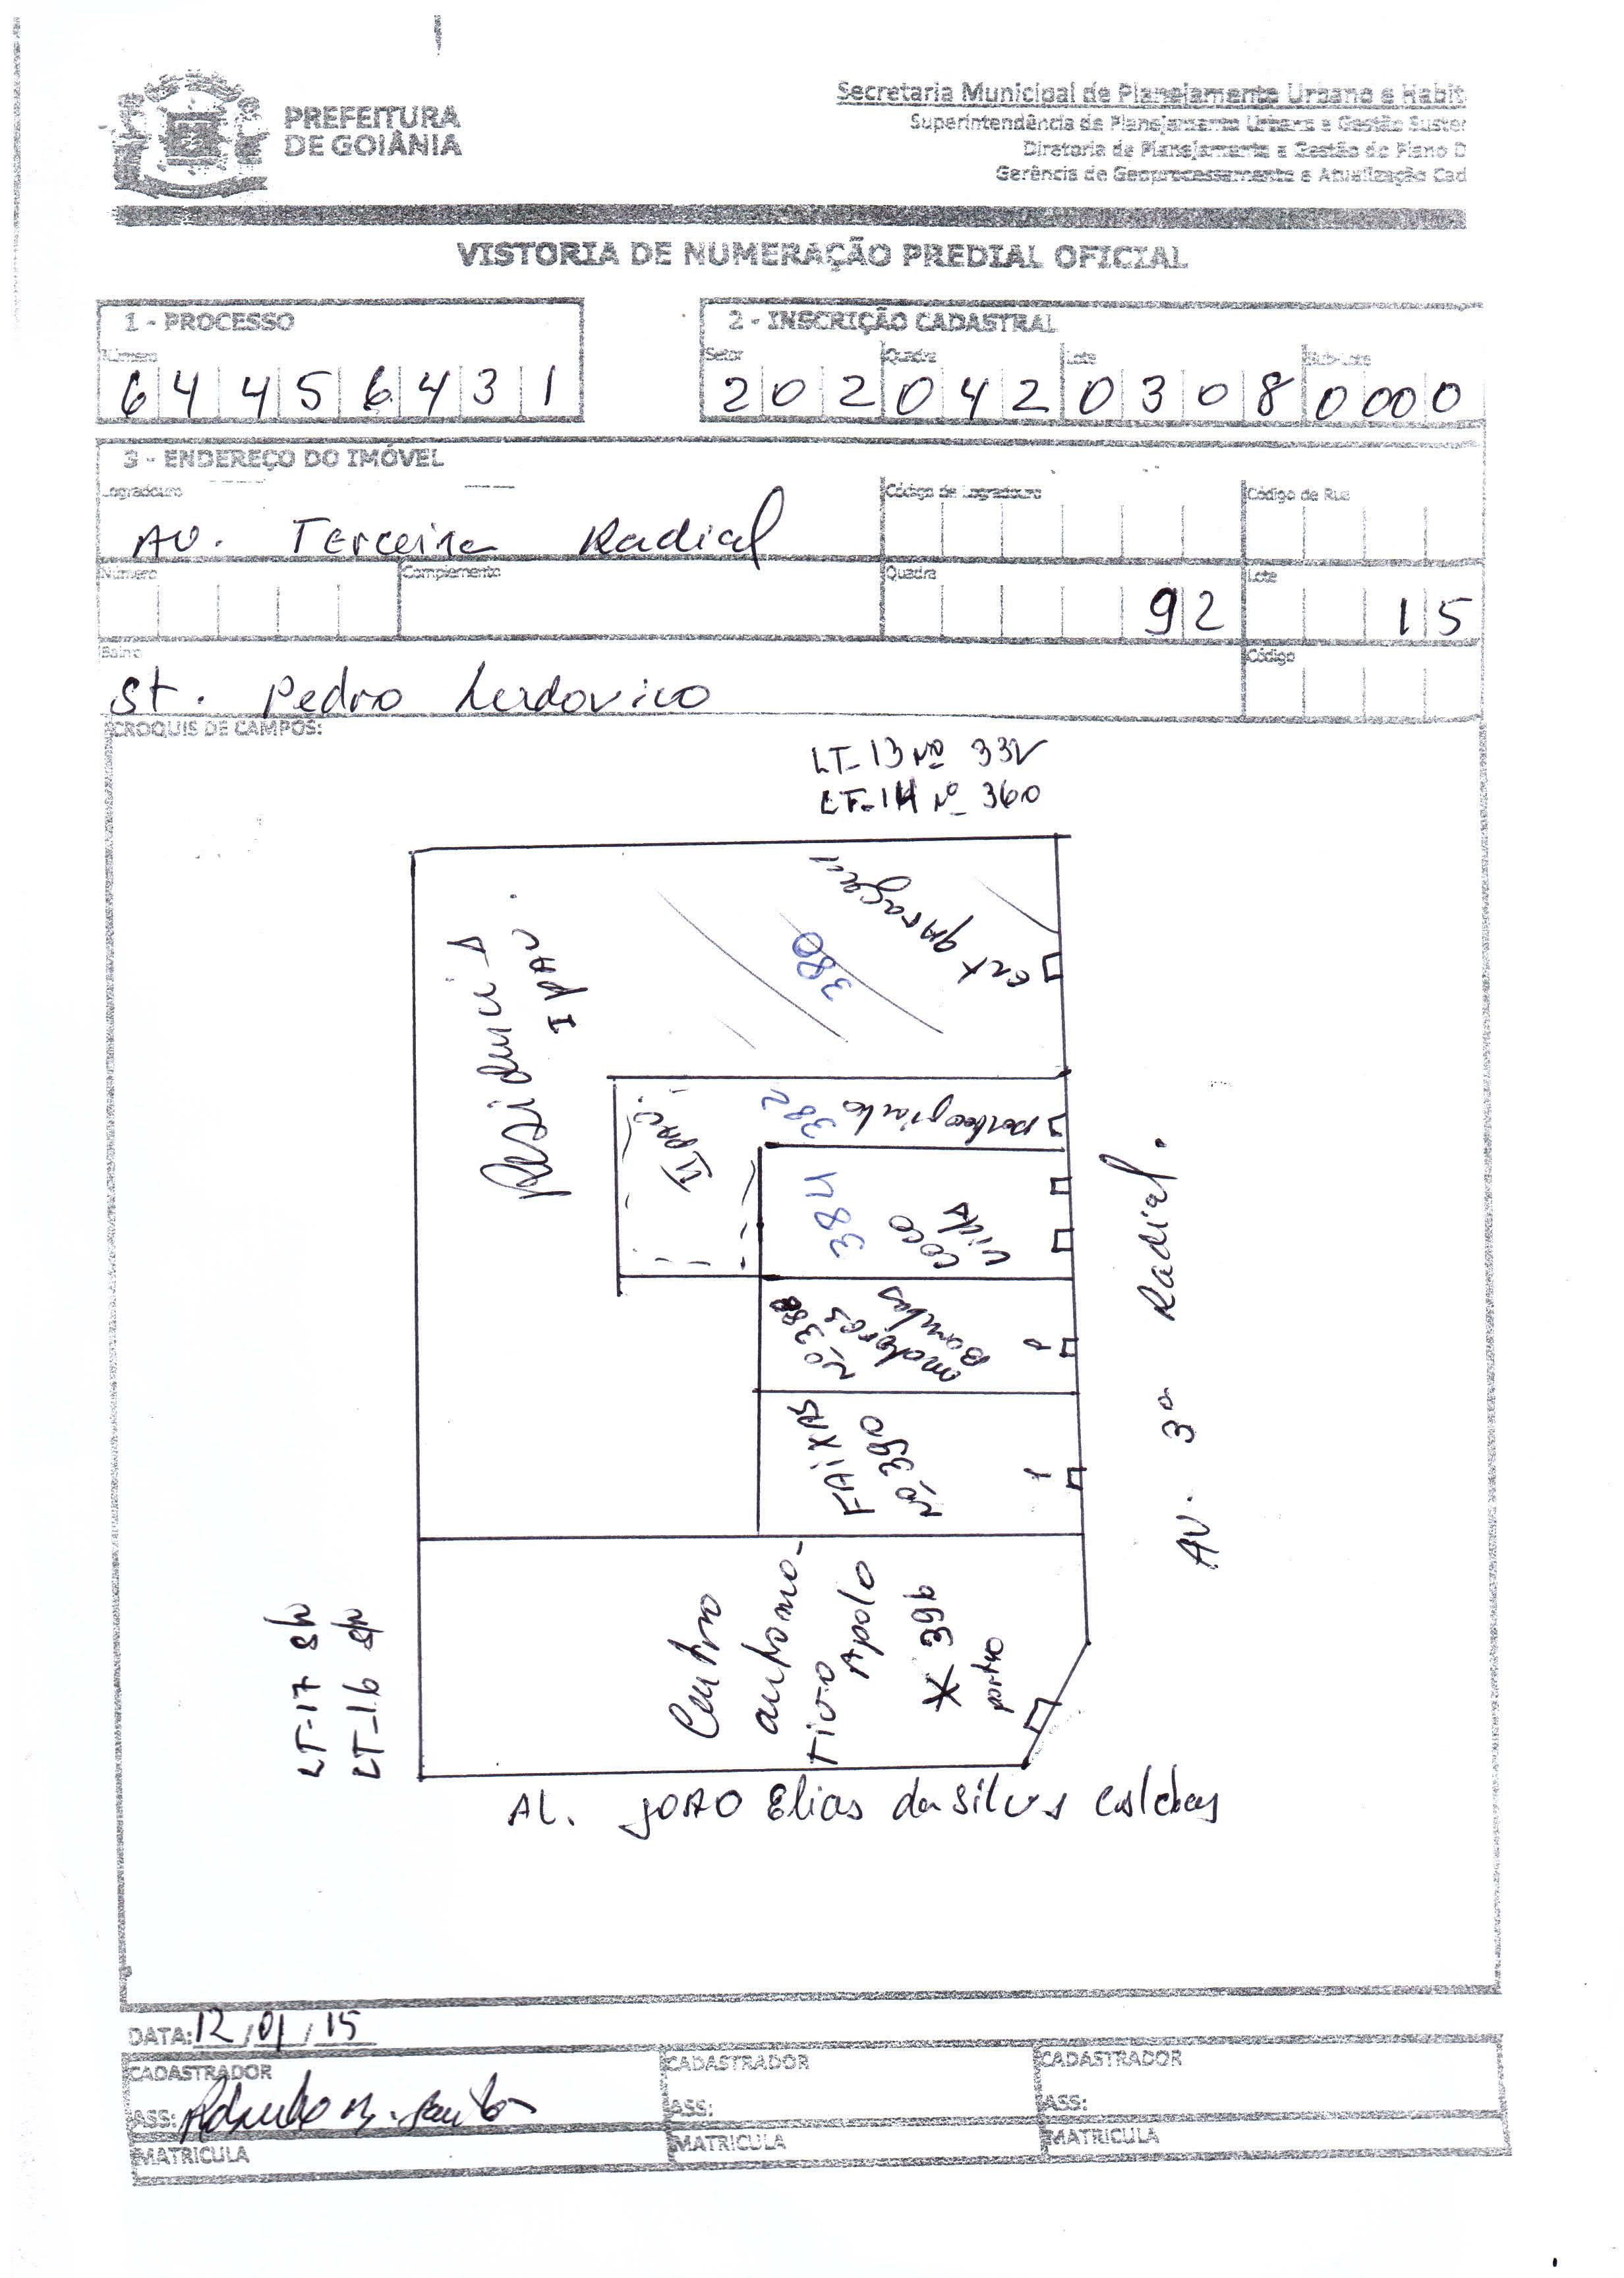 PREFEITURA
DE GOIÂNIA
Secretaria Municipal de Planejamento Urbano e Habit
Superintendência de Planejamento Urbano e Gestão Susten
Diretoria de Planejamento e Gestão do Plano D
Gerência de Geoprocessamento e Atualização Cad
VISTORIA DE NUMERAÇÃO PREDIAL OFICIAL
1 - PROCESSO
Número
6 4 4 5 6 4 3 1
2 - INSCRIÇÃO CADASTRAL
Setor Quadra Lote Sub-Lote
2 0 2 0 4 2 0 3 0 8 0 0 0 0
3 - ENDEREÇO DO IMÓVEL
Logradouro Código de Logradouro Código de Rua
AV. Terceira Radial
Número Complemento Quadra Lote
92 15
Bairro Código
St. Pedro Ludovico
CROQUIS DE CAMPOS:
LT-13 Nº 332
LT-14 Nº 360
Residencia
I PAV.
garagem
380
II PAV.
382
384
Coco
Vida
Nº 388
motores
Bombas
FAIXAS
Nº 390
Centro
automo-
Tivo
Apolo
* 396
portão
AV. 3ª Radial.
LT-17 S/N
LT-16 S/N
AL. JOAO Elias da Silva Caldas
DATA: 12/01/15
CADASTRADOR CADASTRADOR CADASTRADOR
ASS: ASS: ASS:
MATRICULA MATRICULA MATRICULA